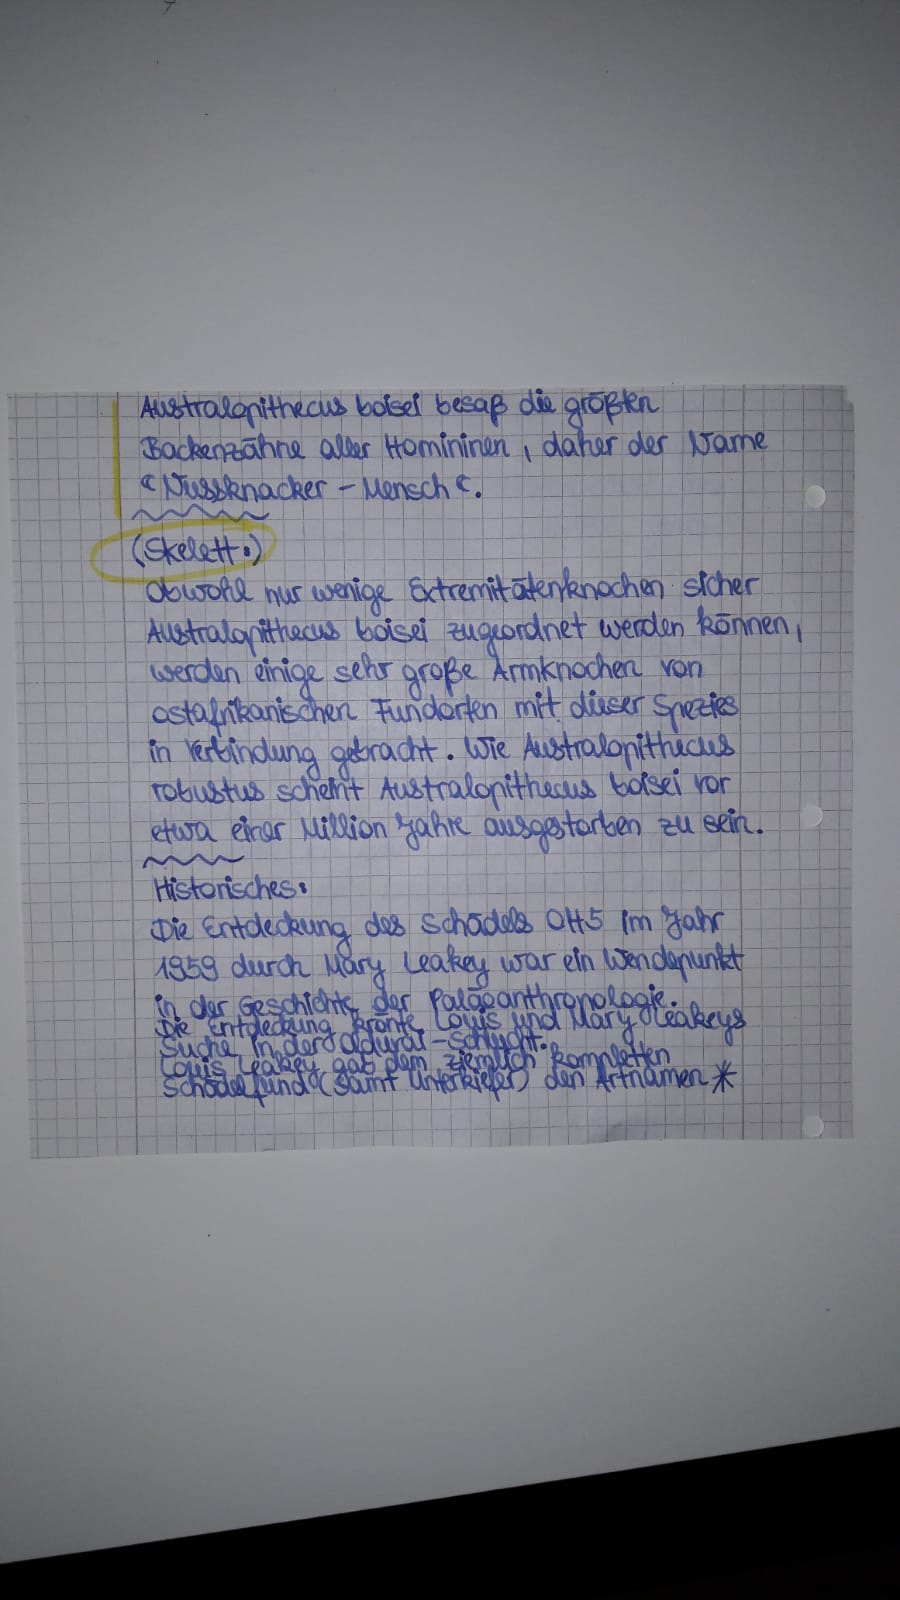 Australopithecus boisei besaß die größten
Backenzähne aller Homininen, daher der Name
‹Nussknacker - Mensch‹.
(Skelett:)
Obwohl nur wenige Extremitätenknochen sicher
Australopithecus boisei zugeordnet werden können,
werden einige sehr große Armknochen von
ostafrikanischen Fundorten mit dieser Spezies
in Verbindung gebracht. Wie Australopithecus
robustus scheint Australopithecus boisei vor
etwa einer Million Jahre ausgestorben zu sein.
Historisches:
Die Entdeckung des Schädels OH5 im Jahr
1959 durch Mary Leakey war ein Wendepunkt
in der Geschichte der Paläoanthropologie.
Die Entdeckung krönte Louis und Mary Leakeys
Suche in der Olduvai-Schlucht.
Louis Leakey gab dem ziemlich kompletten
Schädelfund (samt Unterkiefer) den Artnamen *